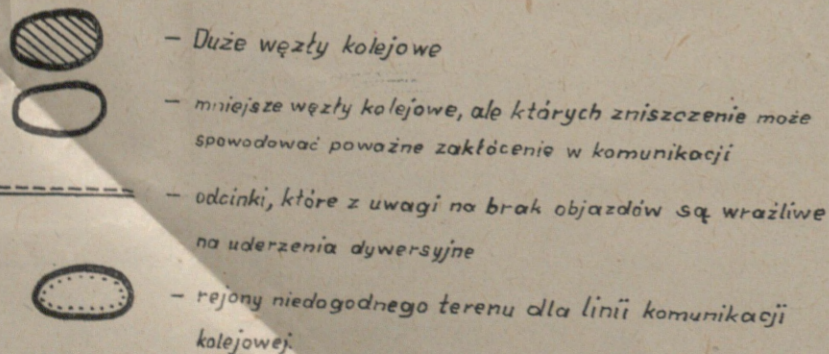 – Duże węzły kolejowe
– mniejsze węzły kolejowe, ale których zniszczenie może
spowodować poważne zakłócenie w komunikacji
– odcinki, które z uwagi na brak objazdów są wrażliwe
na uderzenia dywersyjne
– rejony niedogodnego terenu dla linii komunikacji
kolejowej.